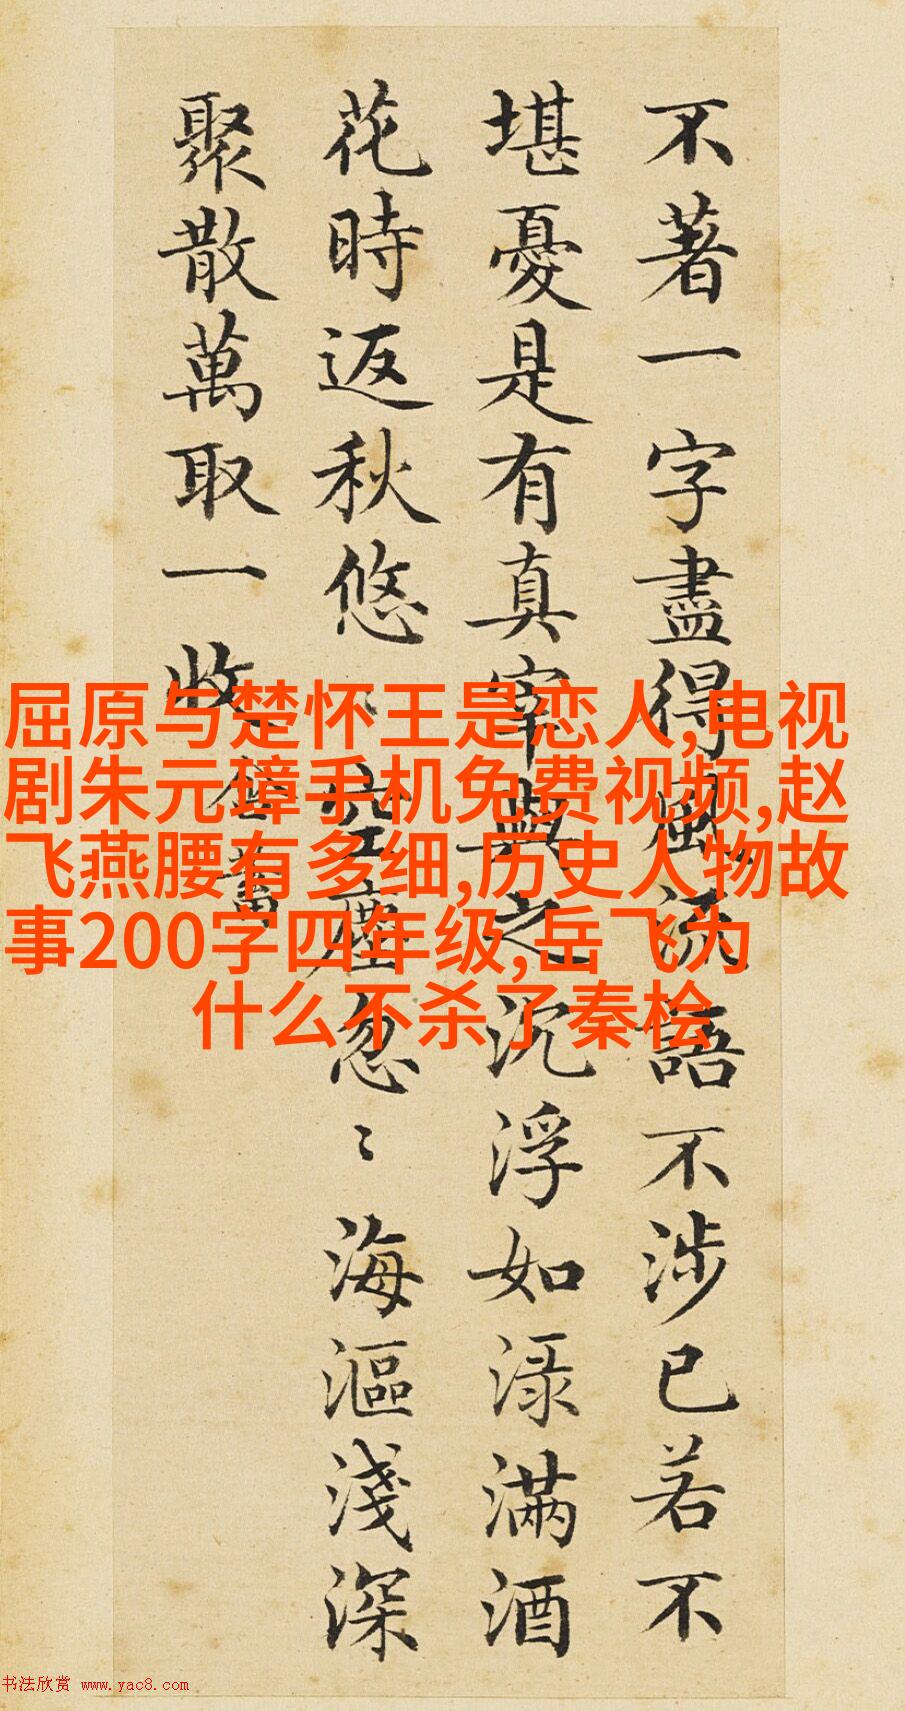 不著一字盡得風流語不涉已若不
堪憂是有真宰與之沉浮如淥滿酒
花時返秋悠〻空塵忽〻海漚淺深
聚散萬取一收
屈原与楚怀王是恋人,电视
剧朱元璋手机免费视频,赵
飞燕腰有多细,历史人物故
事200字四年级,岳飞为
什么不杀了秦桧
书法欣赏 www.yac8.com